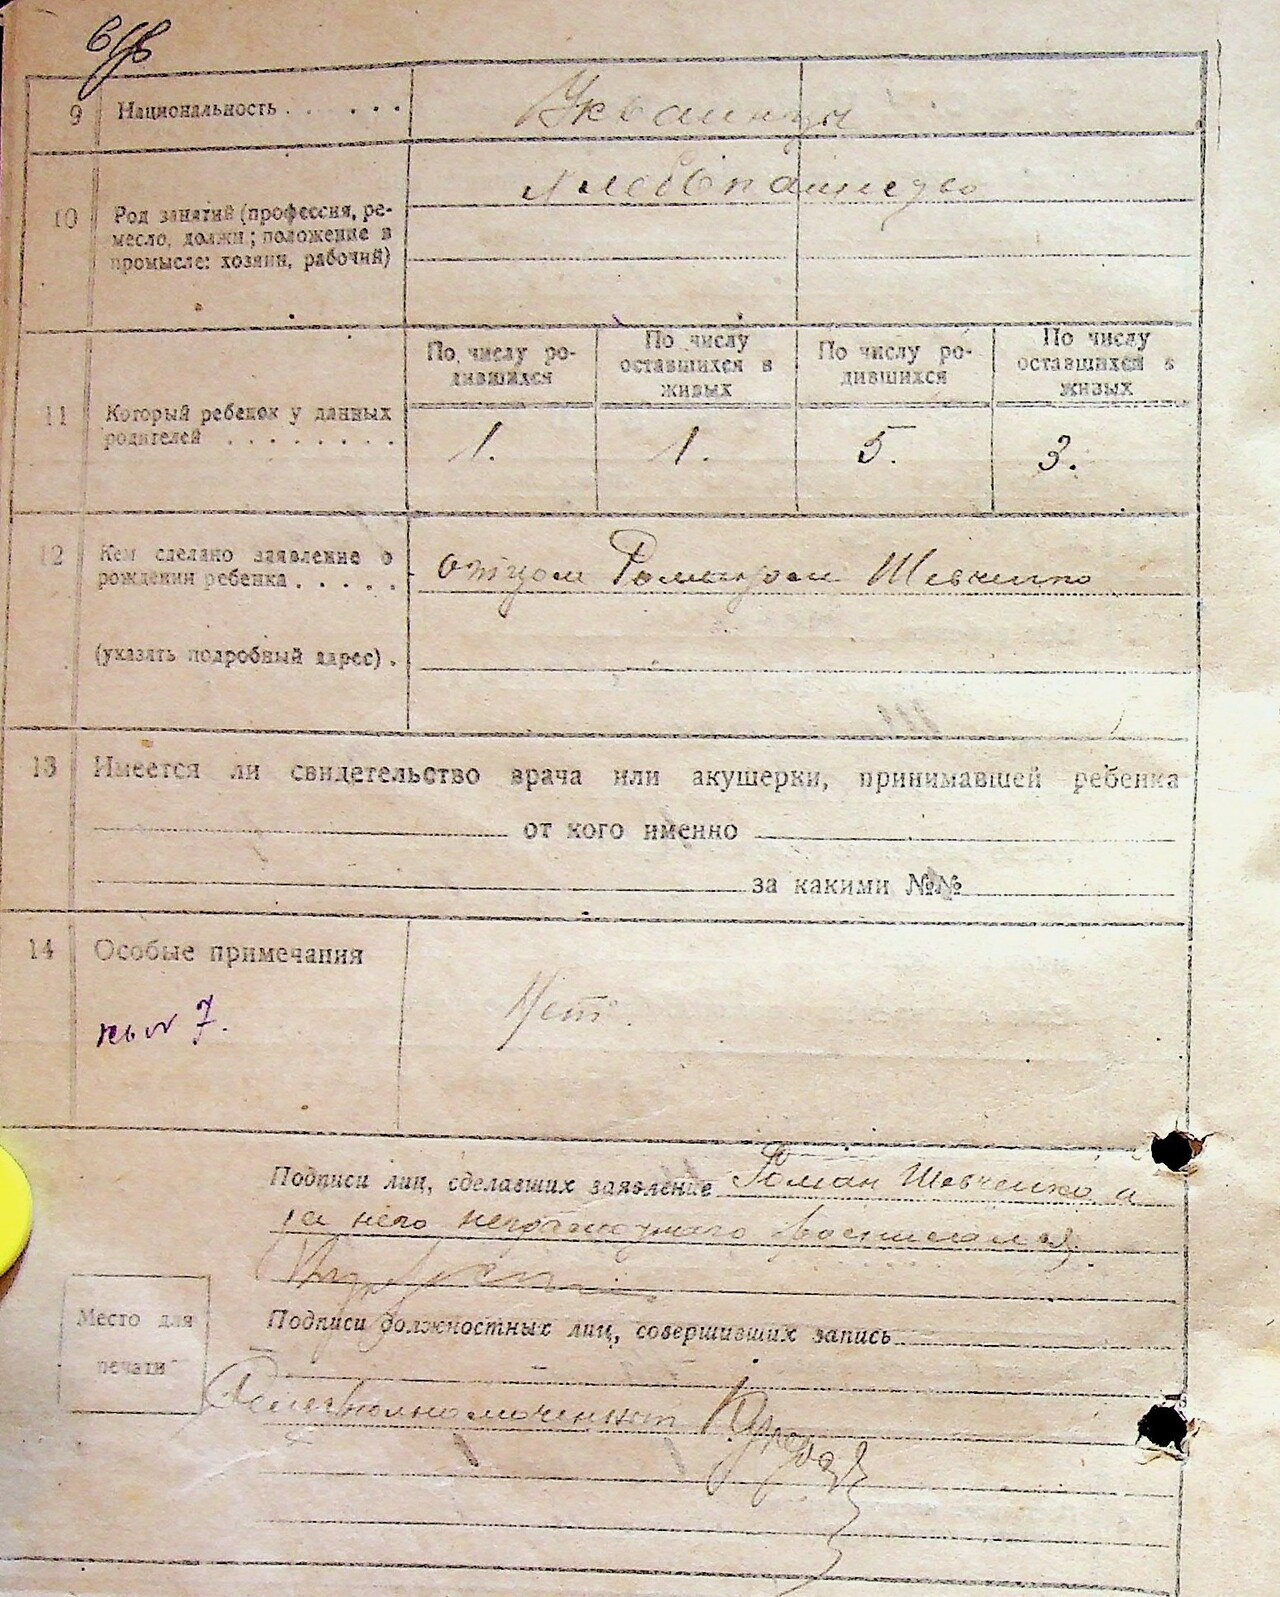 9 Национальность . . . . . . Украинцы
Хлебопашество
10 Род занятий (профессия, ре-
месло, должн.; положение в
промысле: хозяин, рабочий)
По числу ро-
дившихся
По числу
оставшихся в
живых
По числу ро-
дившихся
По числу
оставшихся в
живых
11 Который ребенок у данных
родителей . . . . . . . .
1. 1. 5. 3.
12 Кем сделано заявление о
рождении ребенка . . . . .
отцом Романом Шевченко
(указать подробный адрес) .
13 Имеется ли свидетельство врача или акушерки, принимавшей ребенка
от кого именно
за какими №№
14 Особые примечания
Нет.
7.
Подписи лиц, сделавших заявление Роман Шевченко а
за него неграмотного росписался
Место для
печати
Подписи должностных лиц, совершивших запись